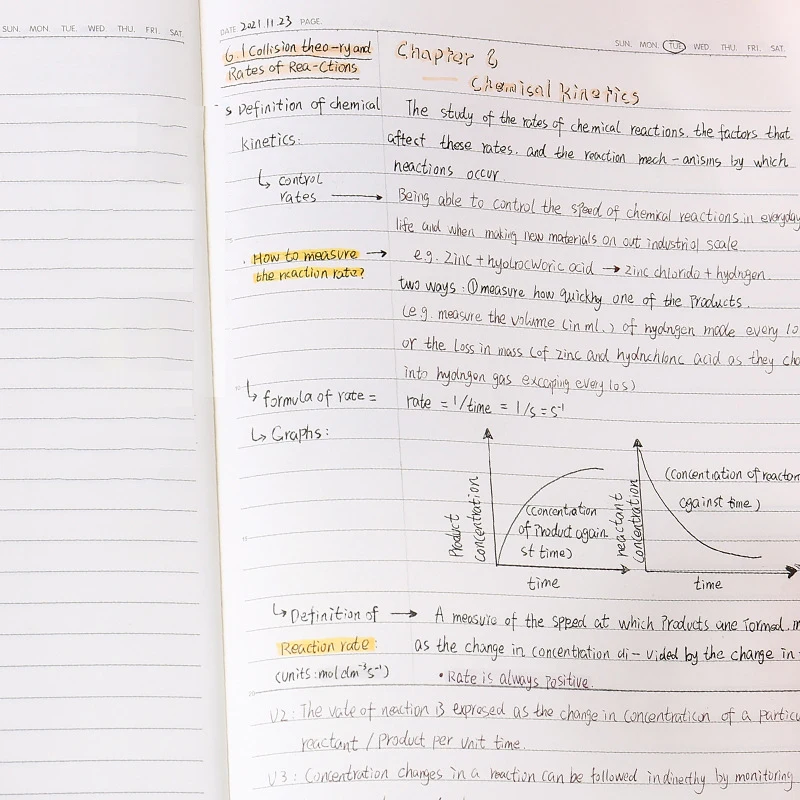 SUN. MON. TUE. WED. THU. FRI. SAT.
DATE 2021.11.23 PAGE
SUN. MON. TUE. WED. THU. FRI. SAT.
6.1 Collision theo-ry and
Rates of Rea-Ctions
Chapter 6
Chemisal kinetics
s Definition of chemical
kinetics:
The study of the rates of chemical reactions. the factors that
affect these rates. and the reaction mech-anisms by which
reactions occur.
↳ control
rates →
Being able to control the speed of chemical reactions in everyday
life and when making new materials on out industrial scale
. How to measure →
the reaction rate?
e.g. zinc + hyolrocworic acid → zinc chlorido + hydrogen.
two ways: ① measure how quickhy one of the Products.
(e.g. measure the volume (in ml.) of hydrogen made every 10
or the Loss in mass (of zinc and hydrochlonc acid as they
into hydrogen gas excaping every 10s)
↳ formula of rate =
rate = 1/time = 1/s = s⁻¹
↳ Graphs:
Product
concentration
(concentration
of Product again
st time)
time
reactant
concentration
(concentration of reactan
against time)
time
↳ Definition of →
Reaction rate:
(units: mol dm⁻³ s⁻¹)
A measure of the spped at which Products are formed.
as the change in concentration di-vided by the change in
• Rate is always Positive.
U2: The vate of reaction is expresed as the change in concentration of a particu
reactant / Product per unit time.
U3: Concentration changes in a reaction can be followed indirecthy by monitoring